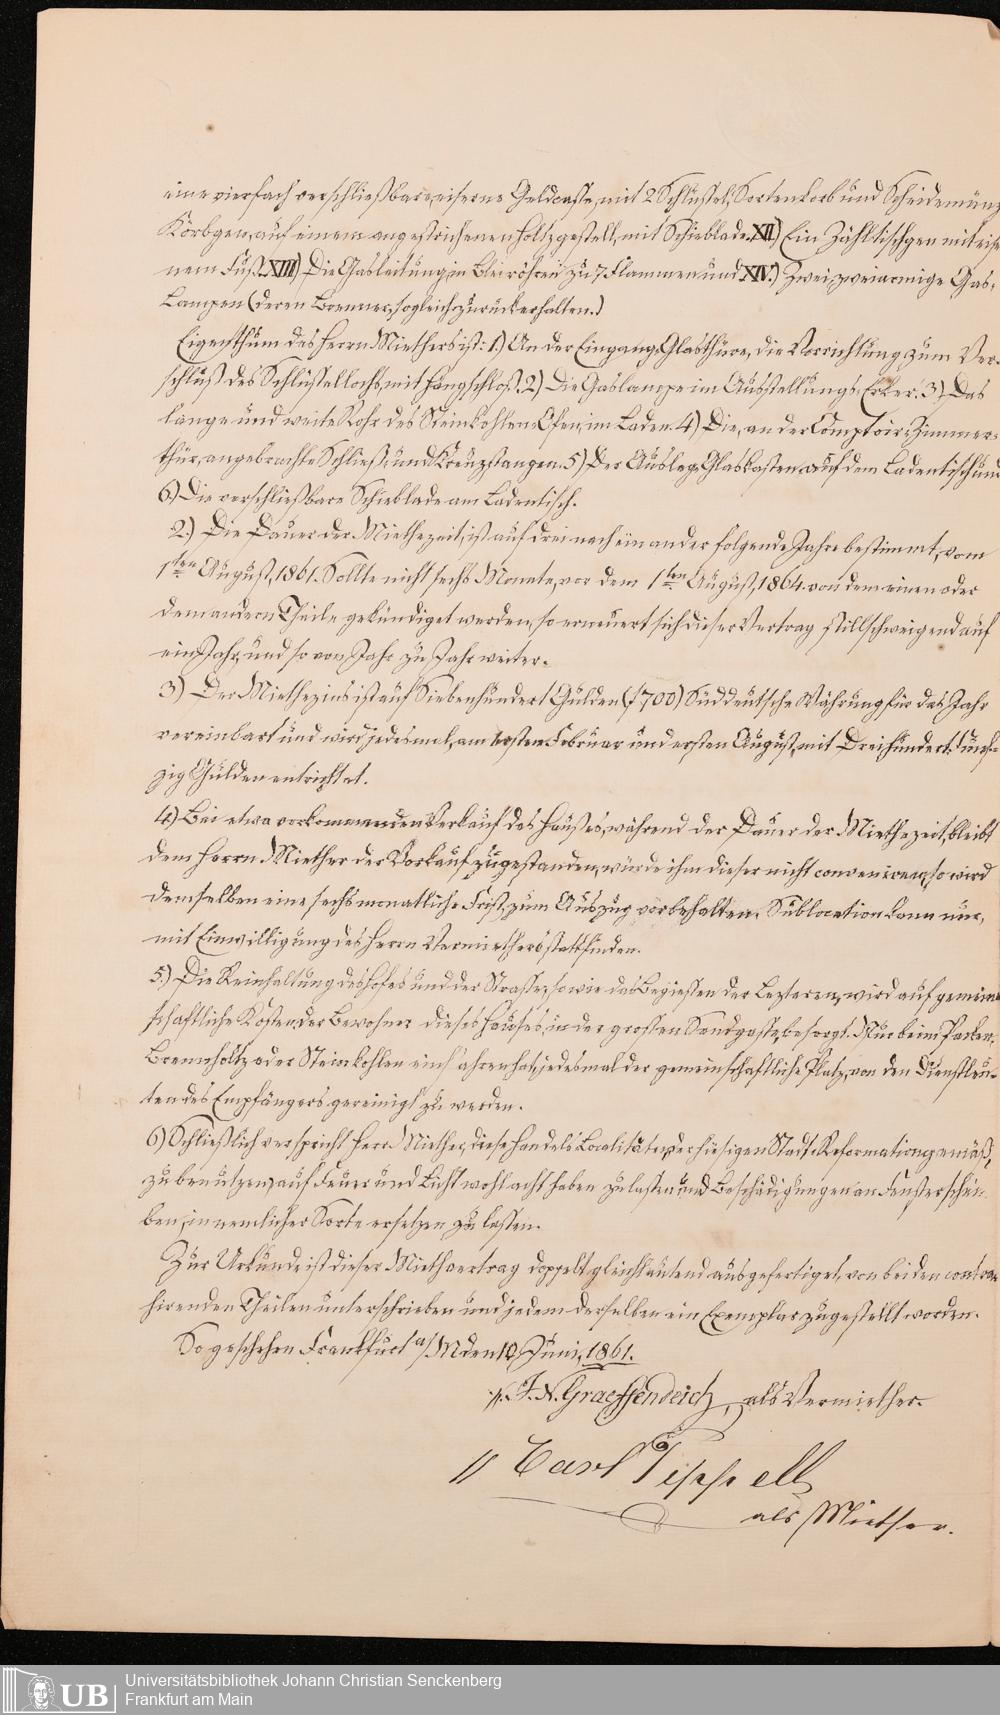 eine vierfach verschließbare, eiserne Geldcaste, mit 2 Schlüstel, Sortenkorb und Scheidemünz
Körbgen, auf einem angestrichenen Holtzgestell, mit Schieblade. XII) Ein Zähltischgen mit eise
nem Fuß. XIII) Die Gasleitung, in Bleiröhren zu 7 Flammen und XIV.) Zwei, zweiarmige Gas-
Lampen (deren Brenner, sogleich zurückerhalten.)
Eigenthum des Herrn Miethers ist: 1.) An der Eingangs Glasthüre, die Vorrichtung zum Ver-
schluß des Schlüstellochs, mit Hangschloß. 2) Die Gaslampe im Ausstellungs-Erker. 3) Das
lange und weite Rohr des Steinkohlen-Ofen, im Laden. 4) Die, an der Comptoir-Zimmer-
thür, angebrachte Schließ- und Kreuzstangen. 5) Der Ausleg-Glaskasten, auf dem Ladentisch und
6.) Die verschließbare Schieblade am Ladentisch.
2.) Die Dauer der Miethezeit, ist auf drei nach einander folgende Jahre bestimmt, vom
1ten August, 1861. Sollte nicht sechs Monate, vor dem 1ten August, 1864. von dem einen oder
dem andern Theile gekündiget werden, so erneuert sich dieser Vertrag stillschweigend auf
ein Jahr, und so von Jahr zu Jahr weiter.
3) Der Miethezins ist auf Siebenhundert Gulden (f 700) Süddeutsche Währung für das Jahr
vereinbart und wird jedesmal, am ersten Februar und ersten August, mit Dreihundert fünf-
zig Gulden entrichtet.
4.) Bei etwa vorkommenden Verkauf des Hauses, während der Dauer der Miethezeit, bleibt
dem Herrn Miether der Vorkauf zugestanden, würde ihm dieser nicht conveniren, so wird
demselben eine sechsmonatliche Frist, zum Auszug vorbehalten. Sublocation kann nur,
mit Einwilligung des Herrn Vermiethers stattfinden.
5.) Die Reinhaltung des Hofes und der Straße, sowie das Begiessen der Lezteren, wird auf gemein
schaftliche Kosten der Bewohner dieses Hauses, in der grosen Sandgasse, besorgt. Nur beim Packen,
Brennholtz oder Steinkohlen einfahren hat, jedesmal der gemeinschaftliche Platz, von den Dienstleu-
ten des Empfängers gereinigt zu werden.
6) Schließlich verspricht Herr Miether, diese Handels Localitäten, der hiesigen Stadt-Reformation gemäß,
zu benutzen, auf Feuer und Licht wohl acht haben zu lassen und Beschädigungen an Fensterschei-
ben, in nemlicher Sorte ersetzen zu lassen.
Zur Urkunde ist dieser Miethvertrag doppelt gleichlautend ausgefertiget, von beiden contra
hirenden Theilen unterschrieben und jedem derselben ein Exemplar zugestellt worden.
So geschehen Frankfurt a/M den 10 Juni, 1861.
J. N. Graeffendeich, als Vermiether.
Carl Tippell
als Miether.
Universitätsbibliothek Johann Christian Senckenberg
Frankfurt am Main
UB